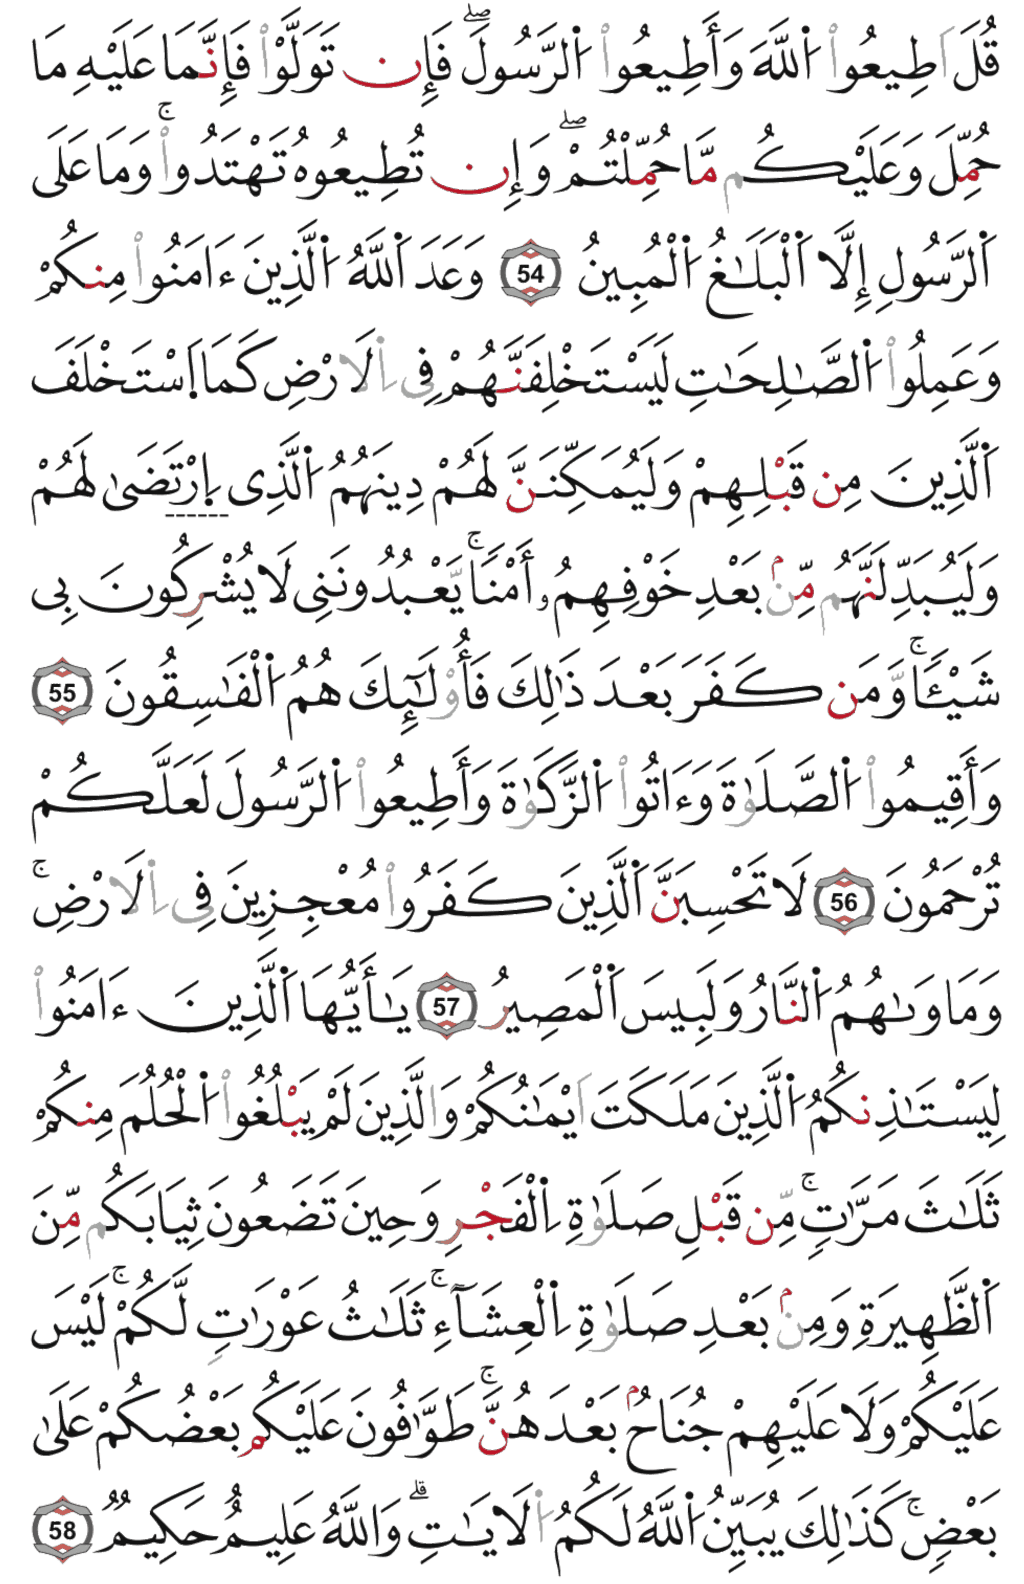 قُلَ اَطِيعُواْ اُ۬للَّهَ وَأَطِيعُواْ اُ۬لرَّسُولَۖ فَإِن تَوَلَّوْاْ فَإِنَّمَا عَلَيْهِ مَا
حُمِّلَ وَعَلَيْكُم مَّا حُمِّلْتُمْۖ وَإِن تُطِيعُوهُ تَهْتَدُواْۚ وَمَا عَلَى
اَ۬لرَّسُولِ إِلَّا اَ۬لْبَلَٰغُ اُ۬لْمُبِينُ 54 وَعَدَ اَ۬للَّهُ اُ۬لَّذِينَ ءَامَنُواْ مِنكُمْ
وَعَمِلُواْ اُ۬لصَّٰلِحَٰتِ لَيَسْتَخْلِفَنَّهُمْ فِي اِ۬لَارْضِ كَمَا اَ۪سْتَخْلَفَ
اَ۬لَّذِينَ مِن قَبْلِهِمْ وَلَيُمَكِّنَنَّ لَهُمْ دِينَهُمُ اُ۬لَّذِي اِ۪رْتَضَىٰ لَهُمْ
وَلَيُبَدِّلَنَّهُم مِّنۢ بَعْدِ خَوْفِهِمُۥ أَمْناٗۚ يَّعْبُدُونَنِي لَا يُشْرِكُونَ بِي
شَيْـٔاٗۚ وَّمَن كَفَرَ بَعْدَ ذَٰلِكَ فَأُوْلَٰٓئِكَ هُمُ اُ۬لْفَٰسِقُونَ 55
وَأَقِيمُواْ اُ۬لصَّلَوٰةَ وَءَاتُواْ اُ۬لزَّكَوٰةَ وَأَطِيعُواْ اُ۬لرَّسُولَ لَعَلَّكُمْ
تُرْحَمُونَ 56 لَا تَحْسِبَنَّ اَ۬لَّذِينَ كَفَرُواْ مُعْجِزِينَ فِي اِ۬لَارْضِۚ
وَمَأْوَىٰهُمُ اُ۬لنَّارُ وَلَبِيسَ اَ۬لْمَصِيرُ 57 يَٰأَيُّهَا اَ۬لَّذِينَ ءَامَنُواْ
لِيَسْتَٰذِنكُمُ اُ۬لَّذِينَ مَلَكَتَ اَيْمَٰنُكُمْ وَالَّذِينَ لَمْ يَبْلُغُواْ اُ۬لْحُلُمَ مِنكُمْ
ثَلَٰثَ مَرَّٰتٖۚ مِّن قَبْلِ صَلَوٰةِ اِ۬لْفَجْرِ وَحِينَ تَضَعُونَ ثِيَابَكُم مِّنَ
اَ۬لظَّهِيرَةِ وَمِنۢ بَعْدِ صَلَوٰةِ اِ۬لْعِشَآءِۚ ثَلَٰثُ عَوْرَٰتٖ لَّكُمْۚ لَيْسَ
عَلَيْكُمْ وَلَا عَلَيْهِمْ جُنَاحُۢ بَعْدَهُنَّۚ طَوَّٰفُونَ عَلَيْكُم بَعْضُكُمْ عَلَىٰ
بَعْضٖۚ كَذَٰلِكَ يُبَيِّنُ اُ۬للَّهُ لَكُمُ اُ۬لَايَٰتِۗ وَاللَّهُ عَلِيمٌ حَكِيمٞ 58